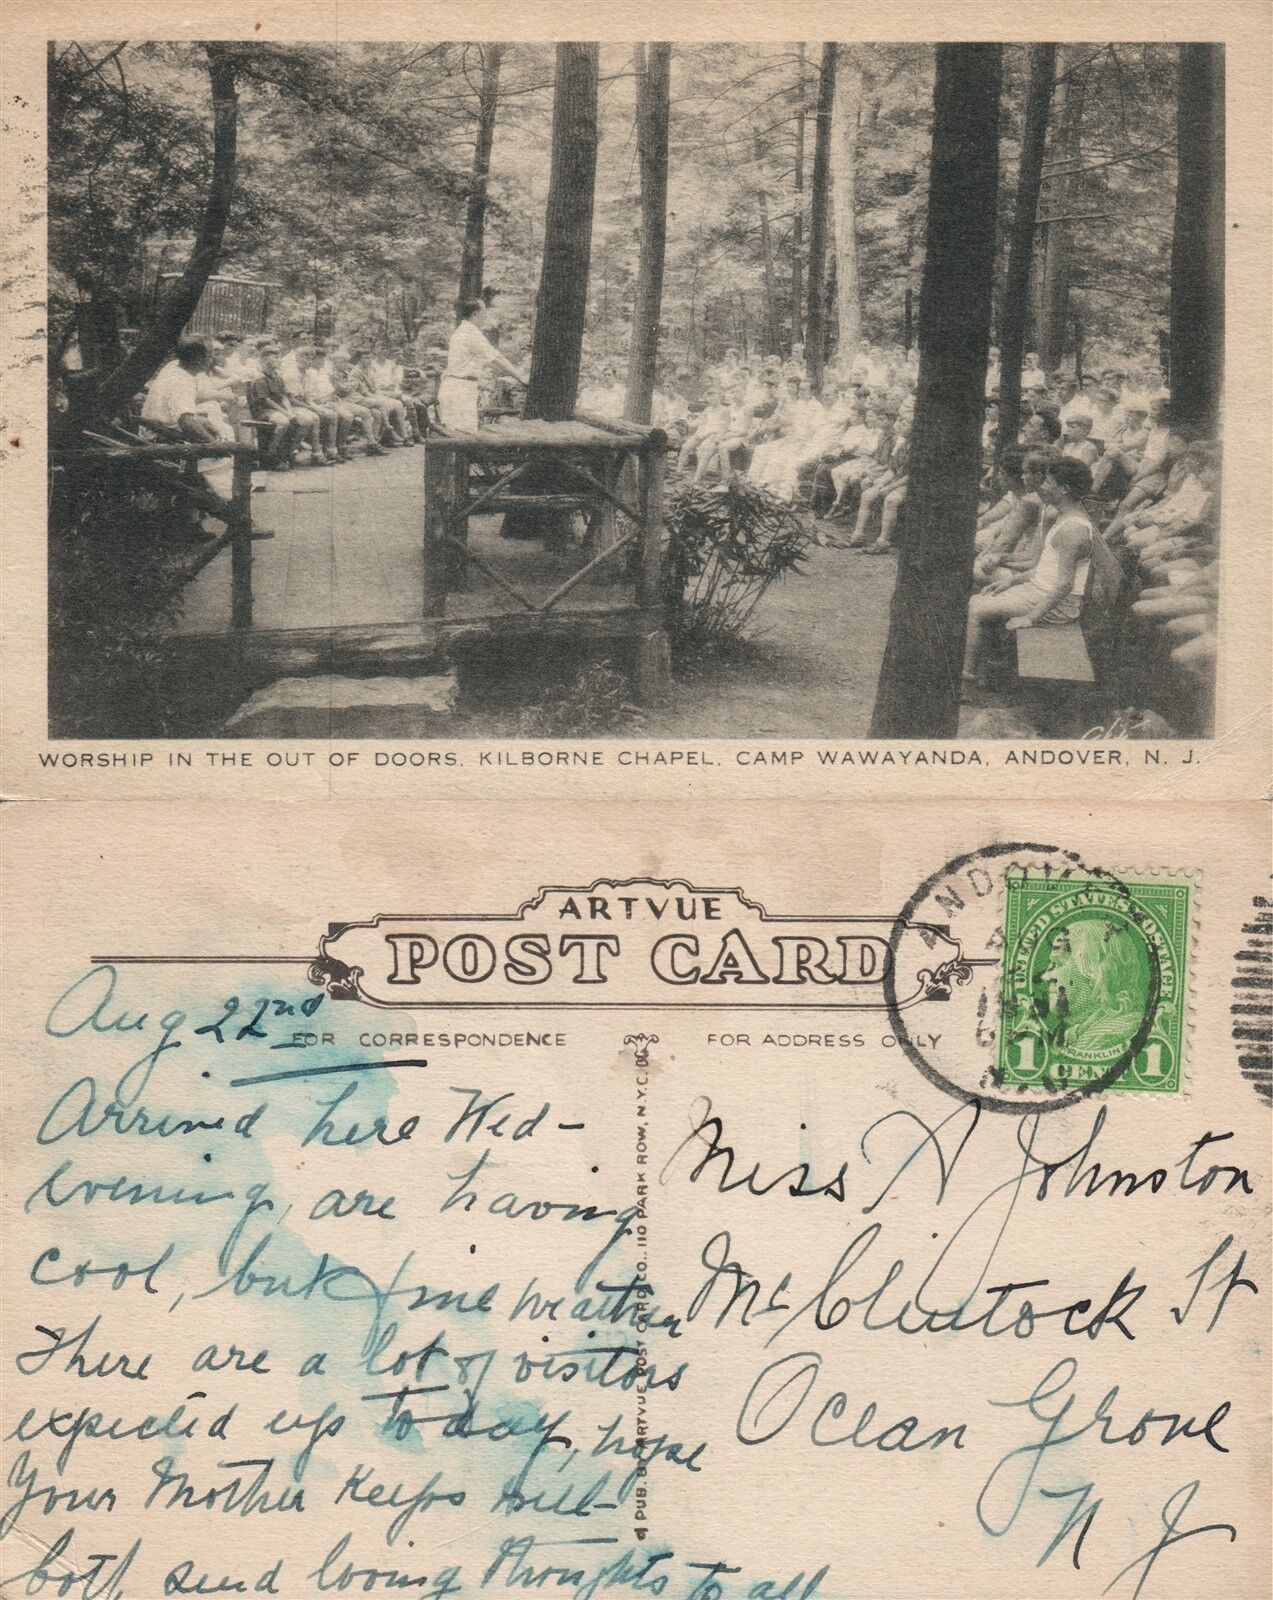 WORSHIP IN THE OUT OF DOORS, KILBORNE CHAPEL, CAMP WAWAYANDA, ANDOVER, N. J.
ARTVUE
POST CARD
FOR CORRESPONDENCE
FOR ADDRESS ONLY
Aug 22nd
Arrived here Wed-
evening, are having
cool, but fine weather
There are a lot of visitors
expected up today, hope
Your Mother Keeps well-
both send loving thoughts to all
PUB. BY ARTVUE POST CARD CO., 110 PARK ROW, N.Y.C.
ANDOVER
N.J.
UNITED STATES POSTAGE
FRANKLIN
1 CENT 1
Miss A Johnston
McClintock St
Ocean Grove
N J